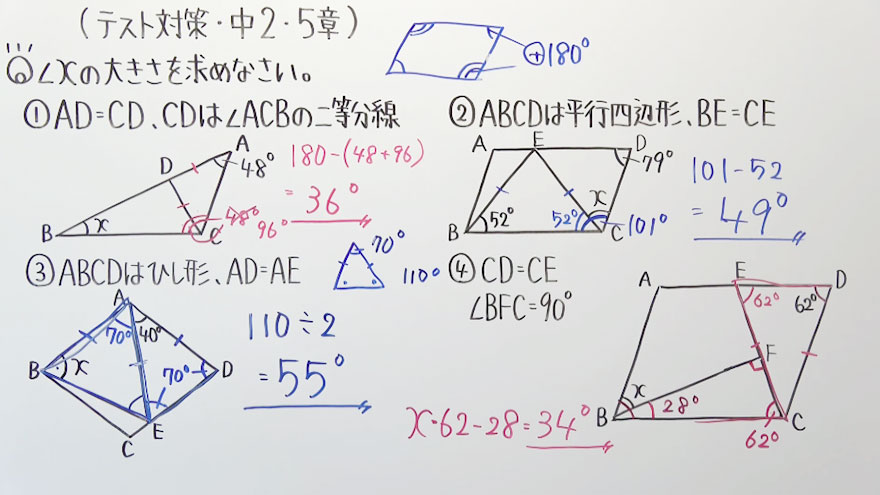 (テスト対策・中2・5章)
∠xの大きさを求めなさい。
⊕180°
①AD=CD、CDは∠ACBの二等分線
A
D
48°
B
x
C
48°
96°
180-(48+96)
=36°
②ABCDは平行四辺形、BE=CE
A
E
D
79°
x
B
52°
52°
C
101°
101-52
=49°
③ABCDはひし形、AD=AE
70°
110°
A
70°
40°
B
x
70°
D
E
C
110÷2
=55°
④CD=CE
∠BFC=90°
A
E
D
62°
62°
F
x
B
28°
C
62°
x=62-28=34°